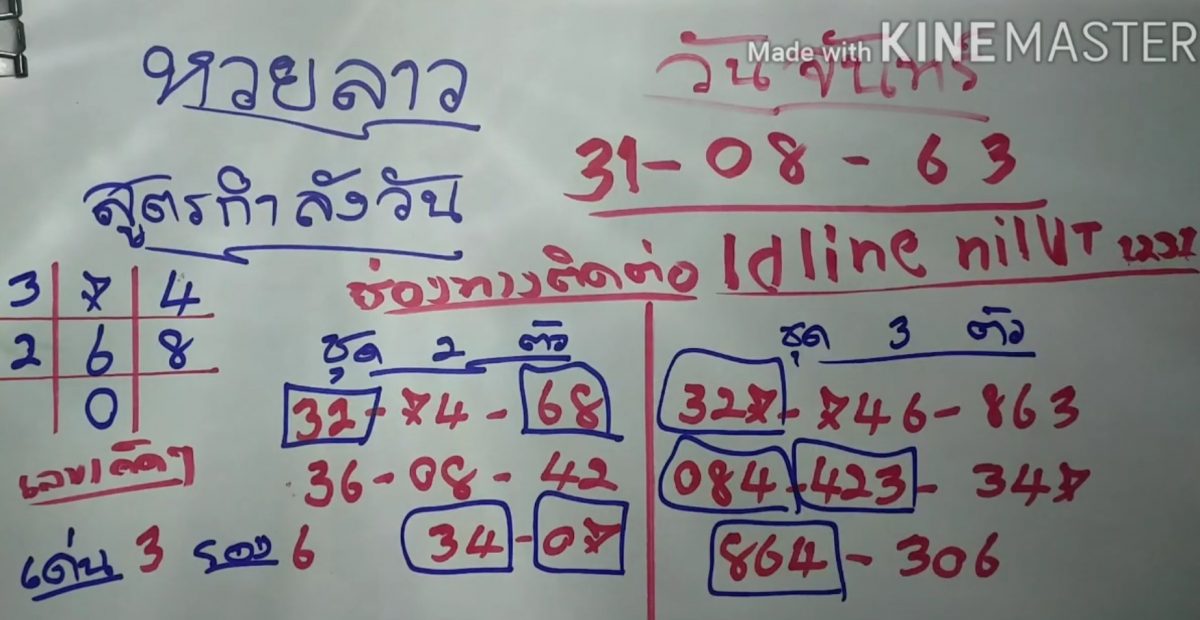 Made with KINEMASTER
หวยลาว
วันจันทร์
31-08-63
สูตรกำลังวัน
ช่องทางติดต่อ Id line nilVT
3 7 4
2 6 8
0
ชุด 2 ตัว
32-74-68
36-08-42
34-07
ชุด 3 ตัว
327-746-863
084-423-347
864-306
เด่น 3 รอง 6